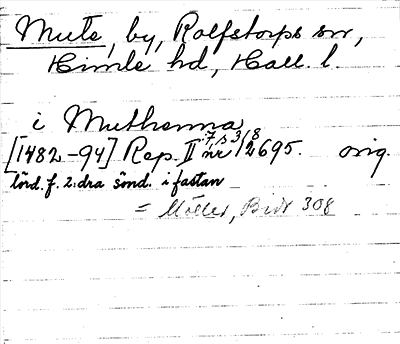 Mute, by, Rolfstorps sn,
Himle hd, Hall. l.
i Muthenna
[1482-94] Rep. II :7, s 318 nr 12695. orig.
lörd. f. 2:dra sönd. i fastan
= Möller, Bidr 308